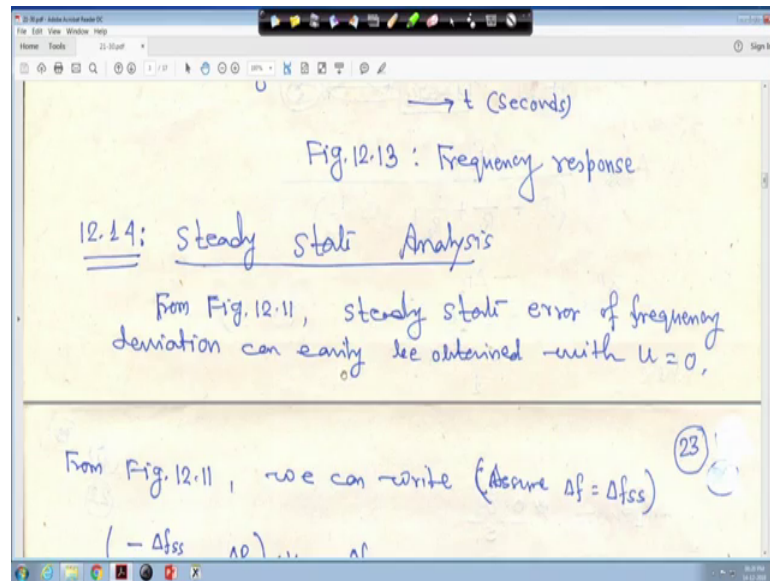 21-30.pdf - Adobe Acrobat Reader DC
File Edit View Window Help
Home Tools 21-30.pdf × Sign In
→ t (seconds)
Fig. 12.13 : Frequency response
12.14: Steady State Analysis
From Fig. 12.11, steady state error of frequency
deviation can easily be obtained with u = 0.
23
From Fig. 12.11, we can write (Assume Δf = Δfss)
( - Δfss